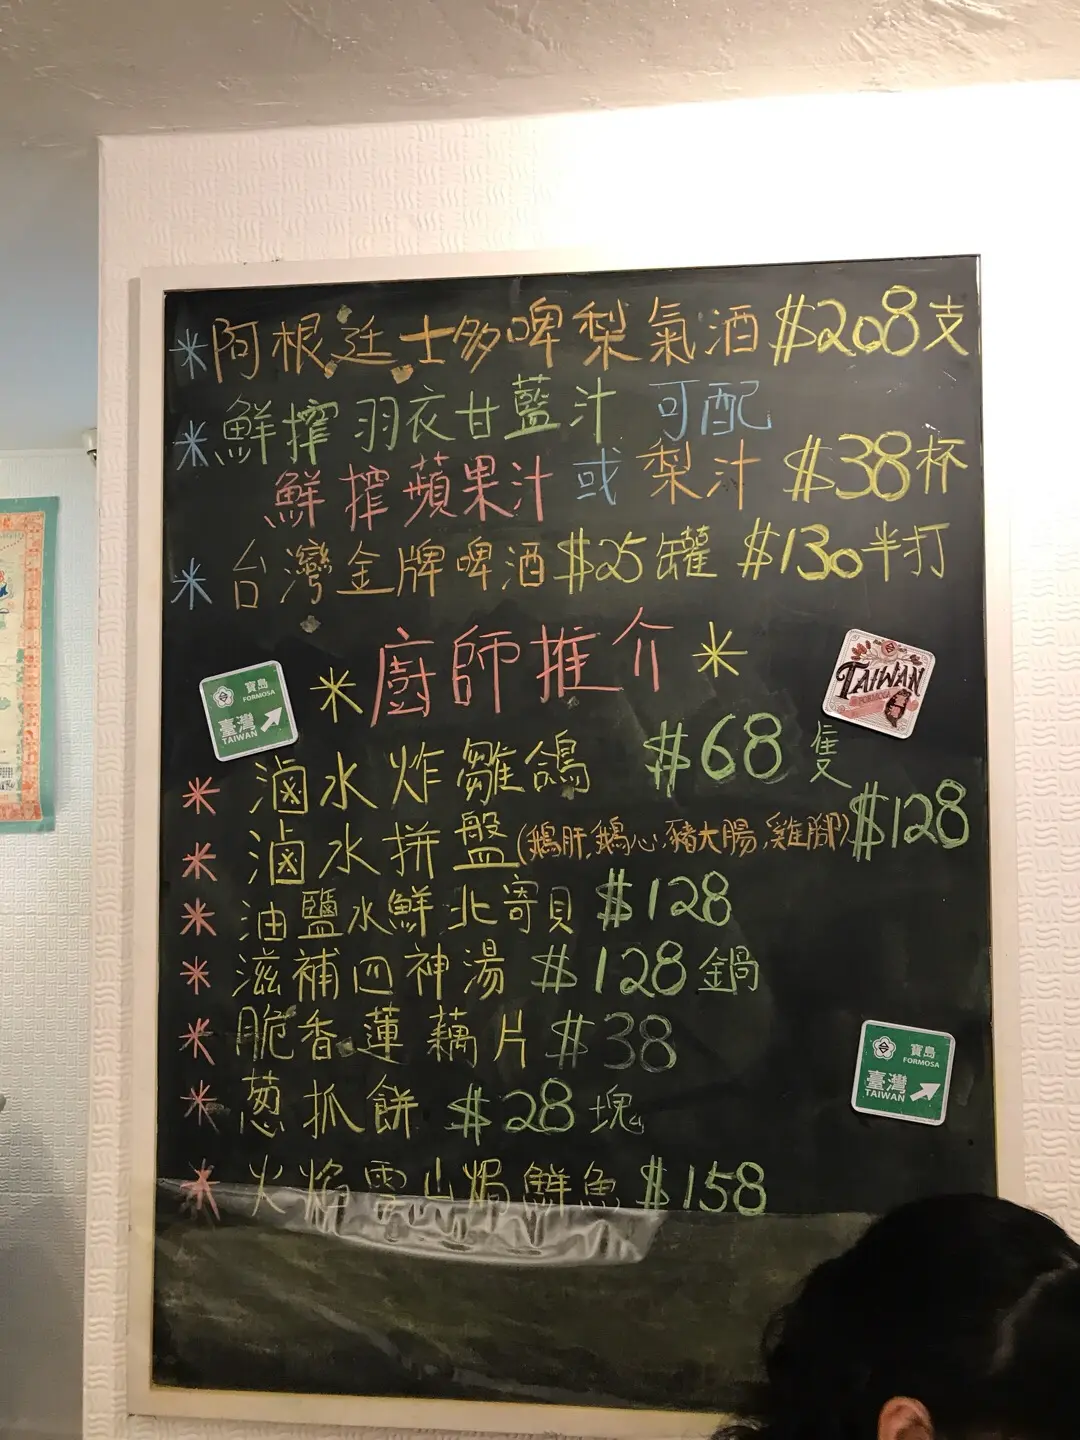 *阿根廷士多啤梨氣酒 $208支
*鮮搾羽衣甘藍汁 可配
鮮搾蘋果汁或梨汁 $38杯
*台灣金牌啤酒$25罐 $130半打
*廚師推介*
寶島
FORMOSA
臺灣
TAIWAN
TAIWAN
FORMOSA
*滷水炸雛鴿 $68隻
*滷水拼盤(鵝肝,鵝心,豬大腸,雞腳)$128
*油鹽水鮮北寄貝 $128
*滋補四神湯 $128鍋
*脆香蓮藕片 $38
*葱抓餅 $28塊
寶島
FORMOSA
臺灣
TAIWAN
*火焰雪山焗鮮魚 $158